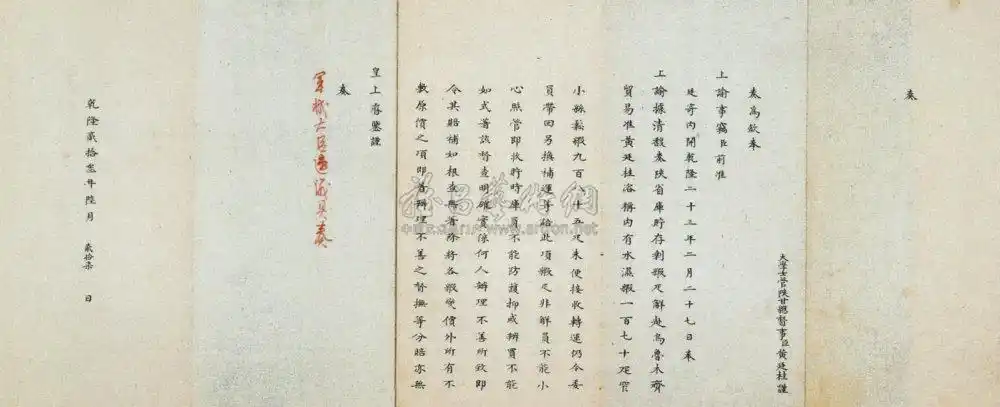 奏
大學士管陝甘總督事臣黃廷桂謹
奏為欽奉
上諭事竊臣前准
廷寄內開乾隆二十三年二月二十七日奉
上諭據清馥奏陝省庫貯存剩緞疋解赴烏魯木齊
貿易准黃廷桂洛稱內有水濕緞一百七十疋實
小絲鬆緞九百八十五疋未便接收轉運仍令委
員帶回另換補運等語此項緞疋非解員不能小
心照管即執貯時庫員不能防護抑或辦買不能
如式著該督查明確實係何人辦理不善所致即
令其賠補如根查無著除將各緞變價外所有不
敷原價之項即著辦理不善之督撫等分賠亦無
皇上睿鑒謹
奏
軍機大臣速議具奏
乾隆貳拾叁年陸月 貳拾柒 日